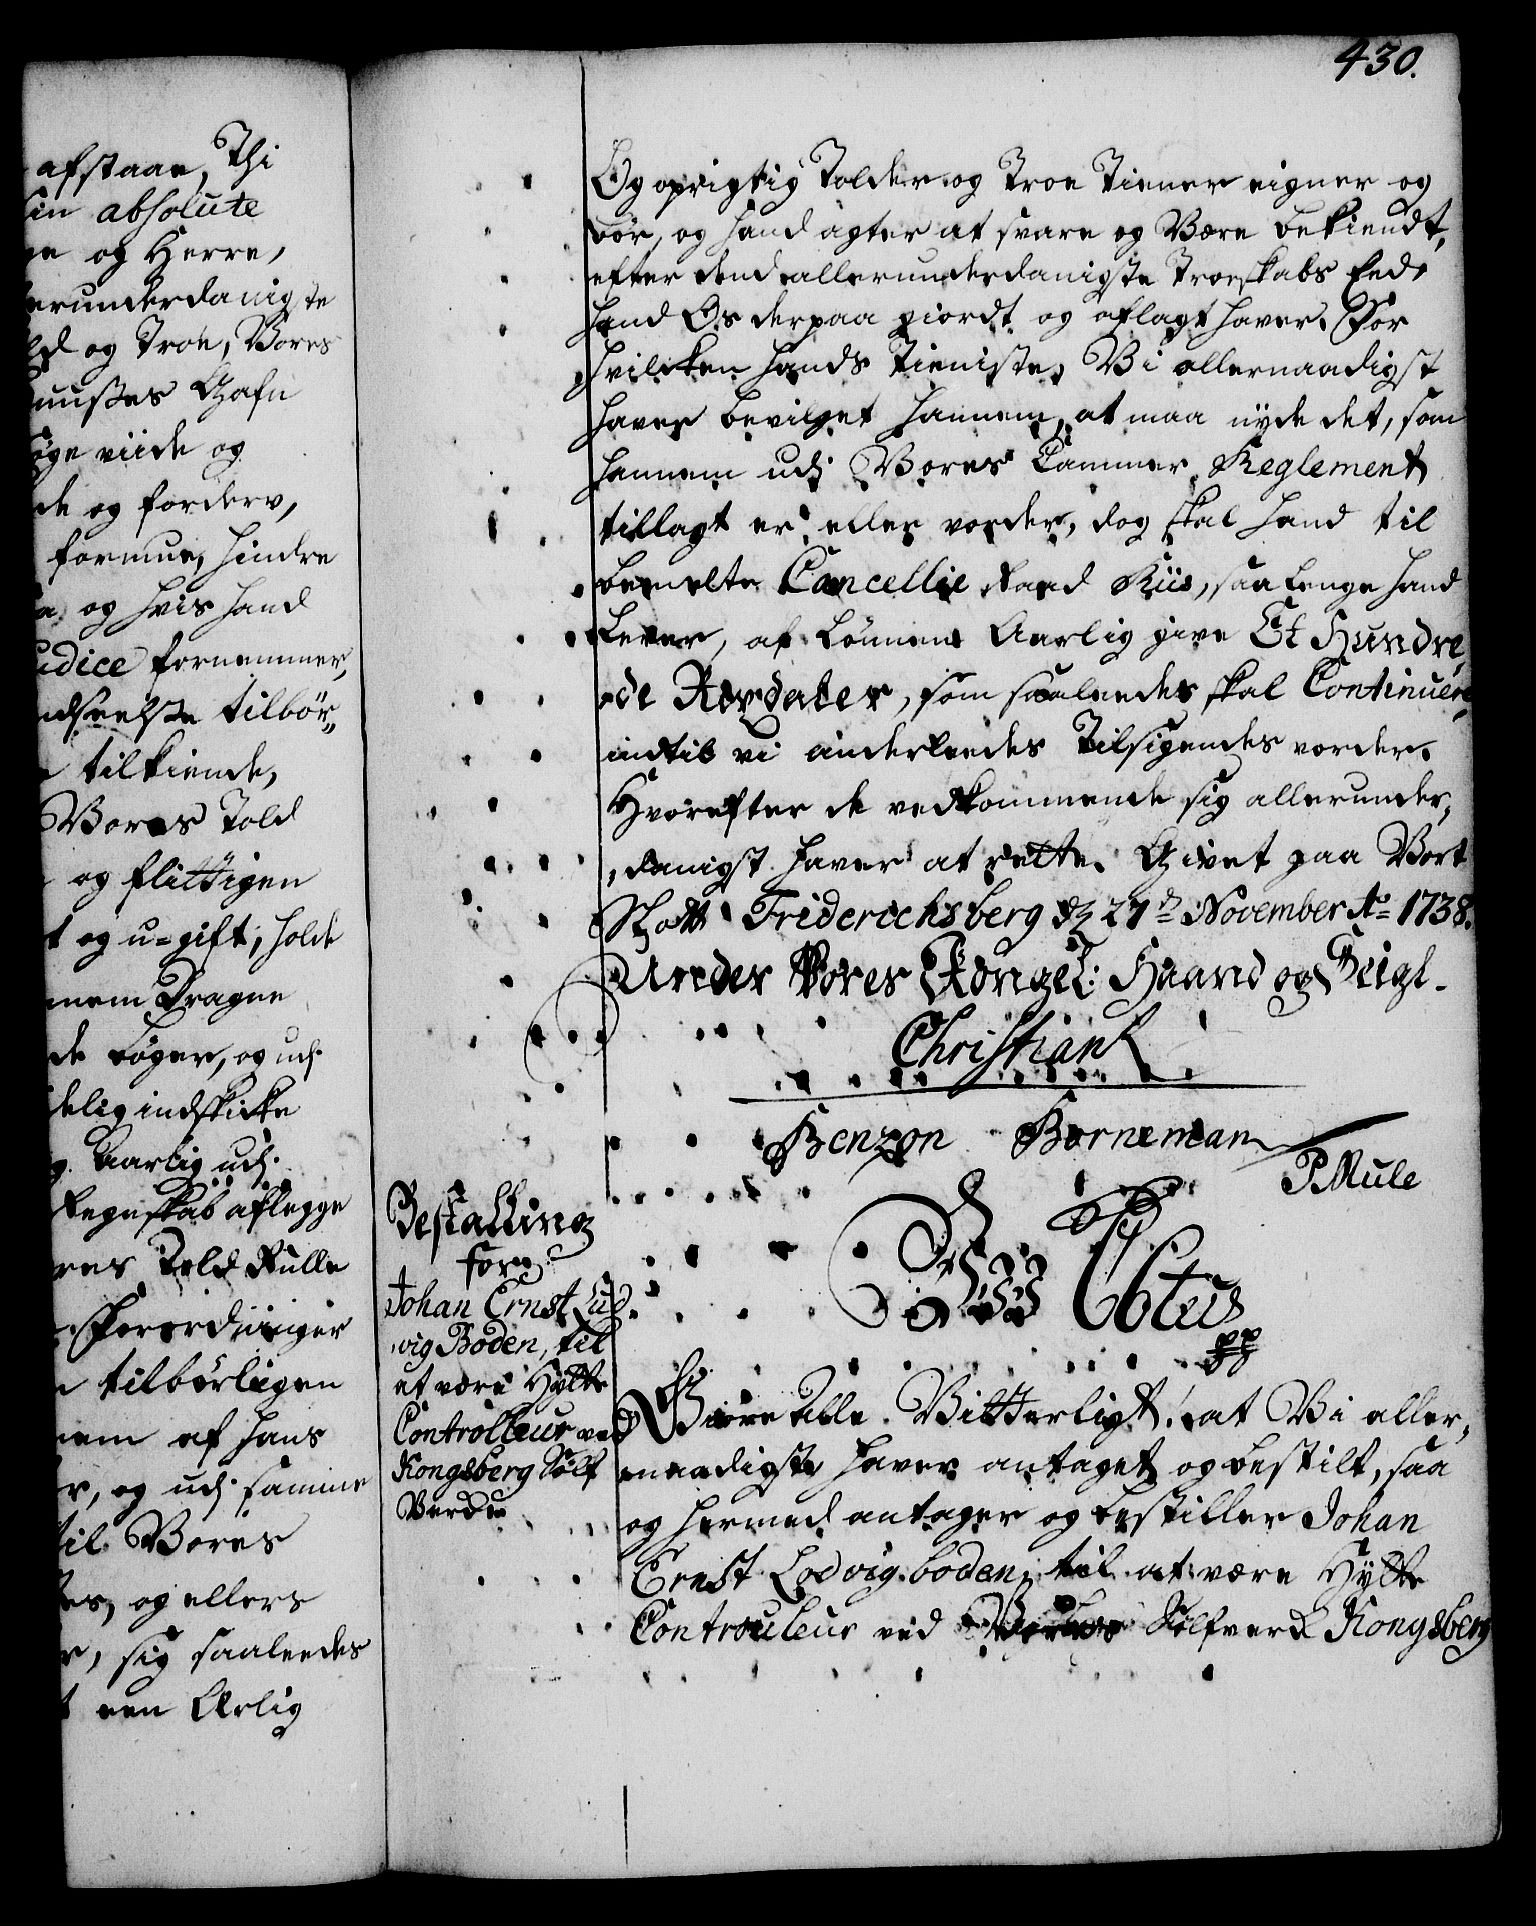 430.
afstaae, Thi
in absolute
ge og Herre,
erunderdanigste
ld og Troe, Vores
Huuses Gafn
øge viide og
de og forderv,
formue, hindre
og hvis hand
udice fornemmer,
tilbør„
tilkiende,
Vores Told
og flittigen
t og u=gift, holde
nem Dragne
de bøger, og udj
delig indskikke
Aarlig udj
Regnskab aflegge
res Told Rulle
Forordninger
tilbørligen
nem af hans
r, og udj samme
til Vores
es, og ellers
r, sig saaleedes
t een Ærlig
Og oprigtig Tolder og Troe Tiener eigner og
bør, og hand agter at svare og Være bekiendt,
efter dend allerunderdanigste Troeskabs Eed,
hand Os derpaa giordt og aflagt haver. For
hvilcken hands Tieniste, Vi allernaadigst
haver bevilget hannem, at maa nyde det, som
hannem udj Vores Cammer Reglement
tillagt er eller vorder, dog skal hand til
bemelte Cancellie Raad Riis, saa lenge hand
Lever, af Lønnen Aarlig give Et Hundre„
„de Rixdaler, som saaleedes skal Continuere,
indtil vi anderleedes Tilsigendes vorder.
Hvorefter de vedkommende sig allerunder„
„danigst haver at rette. Givet paa Vort
Slott Friderichsberg d: 27de November Ao 1738.
Under Vores Kongel: Haand og Seigl.
Christian R
Benzon Borneman
P Mule
Bestalling
for
Johan Ernst Lud„
„vig Boden, til
at være Hytte
Controlleur ved
Kongsberg Sølf
Verck
Wii C6tus
pp
Giøre Alle Vitterligt! at Vi aller„
naadigste haver antaget og bestilt, saa
og hermed antager og bestiller Johan
Ernst Lodvig boden, til at være Hytte
Controuleur ved Vores Sølfverck Kongsberg